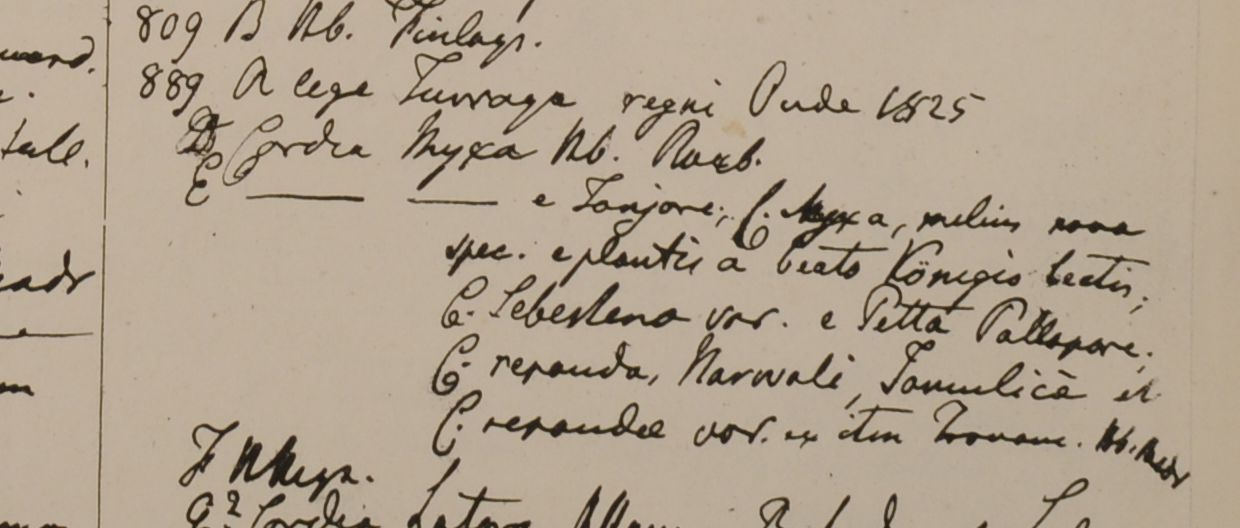 uard.
809 B Hb. Finlays.
889 A lege Turraga regni Oude 1825
tall.
D Cordia Myxa Hb. Roxb.
E —— —— e Tanjore; C. Myxa, melius nova
spec. e plantis a beato Königio lectis;
C. Sebestena var. e Petta Pallapore;
C. repanda, Narwali, Tamulicè et
C. repandae var. ex itin Hb. Madr
F Hb Heyn.
G? Cordia